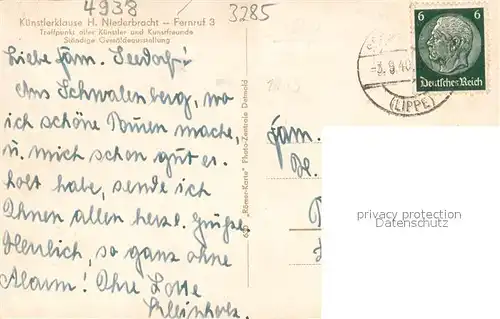 4938
3285
Künstlerklause H. Niederbracht – Fernruf 3
Treffpunkt aller Künstler und Kunstfreunde
Ständige Gemäldeausstellung
Liebe Fam. Seedorf!
Aus Schwalenberg, wo
ich schöne Touren mache,
u. mich schon gut er-
holt habe, sende ich
Ihnen allen herzl. Grüße.
Herrlich, so ganz ohne
Alarm! Ihre Lotte
Kleinholz.
"Römer-Karte" Photo-Zentrale Detmold
Fam.
6 6
Deutsches Reich
-3.9.40
(LIPPE)
privacy protection
Datenschutz